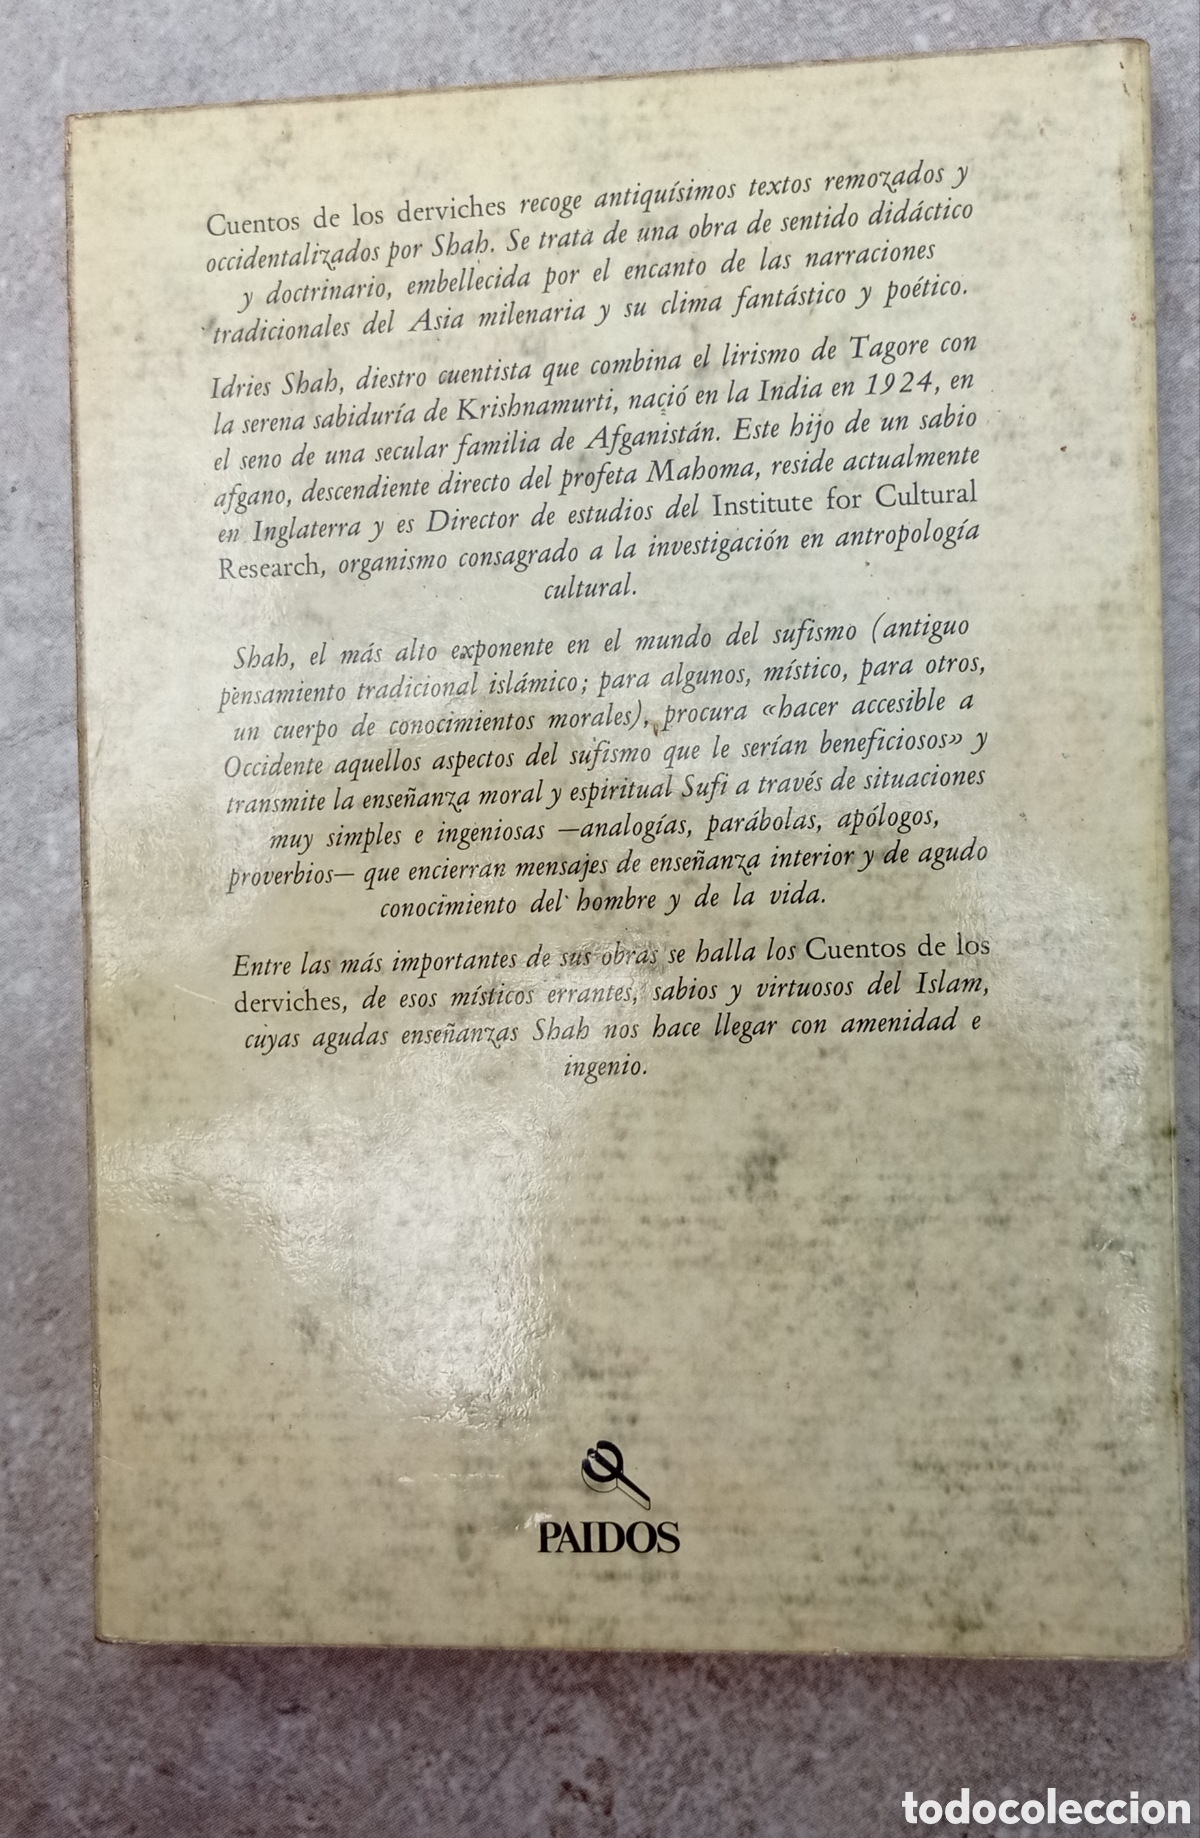 Cuentos de los derviches recoge antiquísimos textos remozados y
occidentalizados por Shah. Se trata de una obra de sentido didáctico
y doctrinario, embellecida por el encanto de las narraciones
tradicionales del Asia milenaria y su clima fantástico y poético.
Idries Shah, diestro cuentista que combina el lirismo de Tagore con
la serena sabiduría de Krishnamurti, nació en la India en 1924, en
el seno de una secular familia de Afganistán. Este hijo de un sabio
afgano, descendiente directo del profeta Mahoma, reside actualmente
en Inglaterra y es Director de estudios del Institute for Cultural
Research, organismo consagrado a la investigación en antropología
cultural.
Shah, el más alto exponente en el mundo del sufismo (antiguo
pensamiento tradicional islámico; para algunos, místico, para otros,
un cuerpo de conocimientos morales), procura «hacer accesible a
Occidente aquellos aspectos del sufismo que le serían beneficiosos» y
transmite la enseñanza moral y espiritual Sufi a través de situaciones
muy simples e ingeniosas —analogías, parábolas, apólogos,
proverbios— que encierran mensajes de enseñanza interior y de agudo
conocimiento del hombre y de la vida.
Entre las más importantes de sus obras se halla los Cuentos de los
derviches, de esos místicos errantes, sabios y virtuosos del Islam,
cuyas agudas enseñanzas Shah nos hace llegar con amenidad e
ingenio.
PAIDOS
todocoleccion